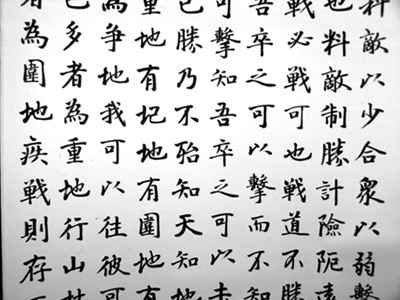 料敵以少合衆以弱擊
也料敵制勝計險阨遠
戰必戰可也戰道不勝
吾卒之可以擊而不知
可擊知吾卒之可以
己勝乃不殆知天知地
重地有圮地有圍地有
為爭地我可以往彼可
多者為重地行山林
者為圍地疾戰則存不